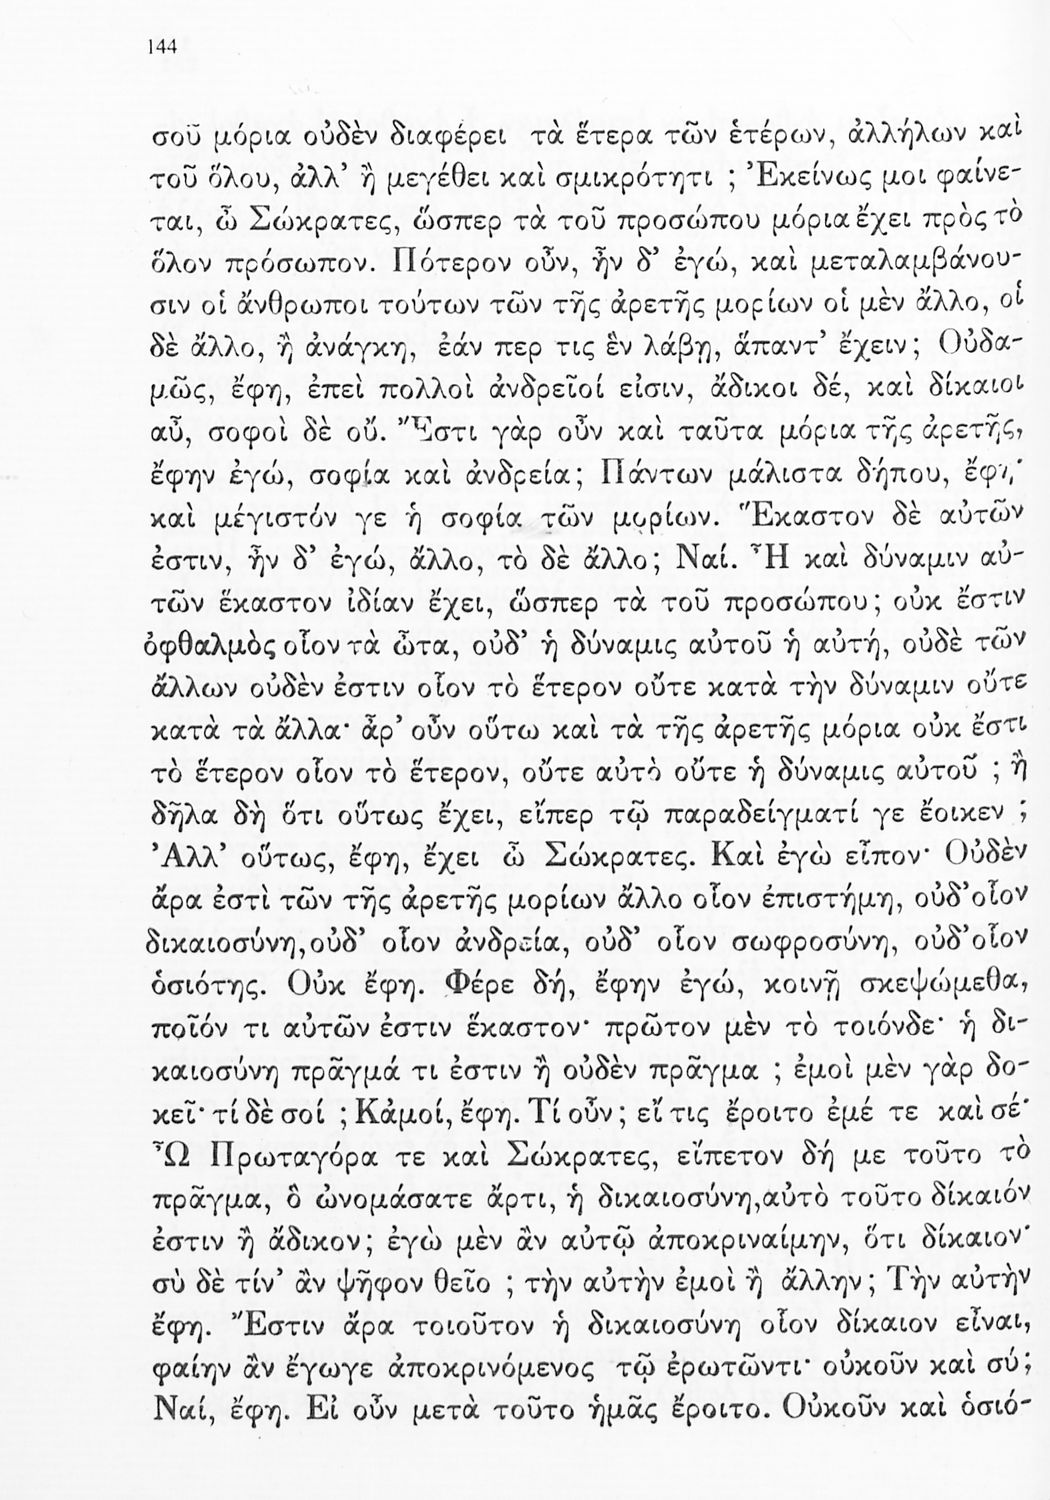 144
σοῦ μόρια οὐδὲν διαφέρει τὰ ἕτερα τῶν ἑτέρων, ἀλλήλων καὶ
τοῦ ὅλου, ἀλλ’ ἢ μεγέθει καὶ σμικρότητι ; Ἐκείνως μοι φαίνε-
ται, ὦ Σώκρατες, ὥσπερ τὰ τοῦ προσώπου μόρια ἔχει πρὸς τὸ
ὅλον πρόσωπον. Πότερον οὖν, ἦν δ’ ἐγώ, καὶ μεταλαμβάνου-
σιν οἱ ἄνθρωποι τούτων τῶν τῆς ἀρετῆς μορίων οἱ μὲν ἄλλο, οἱ
δὲ ἄλλο, ἢ ἀνάγκη, ἐάν περ τις ἓν λάβῃ, ἅπαντ’ ἔχειν; Οὐδα-
μῶς, ἔφη, ἐπεὶ πολλοὶ ἀνδρεῖοί εἰσιν, ἄδικοι δέ, καὶ δίκαιοι
αὖ, σοφοὶ δὲ οὔ. Ἔστι γὰρ οὖν καὶ ταῦτα μόρια τῆς ἀρετῆς,
ἔφην ἐγώ, σοφία καὶ ἀνδρεία; Πάντων μάλιστα δήπου, ἔφη·
καὶ μέγιστόν γε ἡ σοφία τῶν μορίων. Ἕκαστον δὲ αὐτῶν
ἐστιν, ἦν δ’ ἐγώ, ἄλλο, τὸ δὲ ἄλλο; Ναί. Ἦ καὶ δύναμιν αὐ-
τῶν ἕκαστον ἰδίαν ἔχει, ὥσπερ τὰ τοῦ προσώπου; οὐκ ἔστιν
ὀφθαλμὸς οἷον τὰ ὦτα, οὐδ’ ἡ δύναμις αὐτοῦ ἡ αὐτή, οὐδὲ τῶν
ἄλλων οὐδὲν ἐστιν οἷον τὸ ἕτερον οὔτε κατὰ τὴν δύναμιν οὔτε
κατὰ τὰ ἄλλα· ἆρ’ οὖν οὕτω καὶ τὰ τῆς ἀρετῆς μόρια οὐκ ἔστι
τὸ ἕτερον οἷον τὸ ἕτερον, οὔτε αὐτὸ οὔτε ἡ δύναμις αὐτοῦ ; ἢ
δῆλα δὴ ὅτι οὕτως ἔχει, εἴπερ τῷ παραδείγματί γε ἔοικεν ;
Ἀλλ’ οὕτως, ἔφη, ἔχει ὦ Σώκρατες. Καὶ ἐγὼ εἶπον· Οὐδὲν
ἄρα ἐστὶ τῶν τῆς ἀρετῆς μορίων ἄλλο οἷον ἐπιστήμη, οὐδ’οἷον
δικαιοσύνη,οὐδ’ οἷον ἀνδρεία, οὐδ’ οἷον σωφροσύνη, οὐδ’οἷον
ὁσιότης. Οὐκ ἔφη. Φέρε δή, ἔφην ἐγώ, κοινῇ σκεψώμεθα,
ποῖόν τι αὐτῶν ἐστιν ἕκαστον· πρῶτον μὲν τὸ τοιόνδε· ἡ δι-
καιοσύνη πρᾶγμά τι ἐστιν ἢ οὐδὲν πρᾶγμα ; ἐμοὶ μὲν γὰρ δο-
κεῖ· τί δὲ σοί ; Κἀμοί, ἔφη. Τί οὖν; εἴ τις ἔροιτο ἐμέ τε καὶ σέ·
Ὦ Πρωταγόρα τε καὶ Σώκρατες, εἴπετον δή με τοῦτο τὸ
πρᾶγμα, ὃ ὠνομάσατε ἄρτι, ἡ δικαιοσύνη,αὐτὸ τοῦτο δίκαιόν
ἐστιν ἢ ἄδικον; ἐγὼ μὲν ἂν αὐτῷ ἀποκριναίμην, ὅτι δίκαιον·
σὺ δὲ τίν’ ἂν ψῆφον θεῖο ; τὴν αὐτὴν ἐμοὶ ἢ ἄλλην; Τὴν αὐτὴν
ἔφη. Ἔστιν ἄρα τοιοῦτον ἡ δικαιοσύνη οἷον δίκαιον εἶναι,
φαίην ἂν ἔγωγε ἀποκρινόμενος τῷ ἐρωτῶντι· οὐκοῦν καὶ σύ;
Ναί, ἔφη. Εἰ οὖν μετὰ τοῦτο ἡμᾶς ἔροιτο. Οὐκοῦν καὶ ὁσιό-